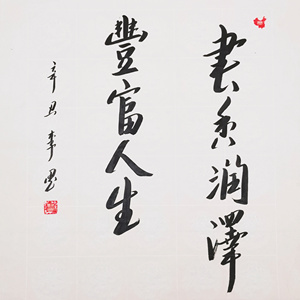 書香润澤
豐富人生
辛丑李墨